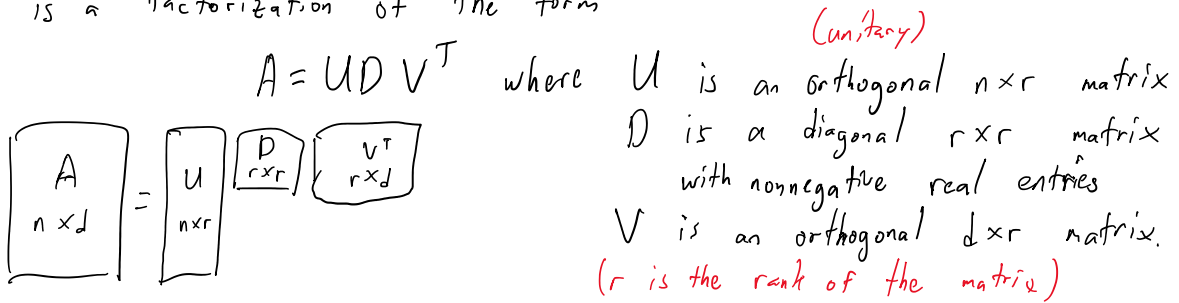 is a factorization of the form
(unitary)
A = U D V^T where U is an orthogonal n×r matrix
D is a diagonal r×r matrix
with nonnegative real entries
V is an orthogonal d×r matrix.
(r is the rank of the matrix)
A
n×d
=
U
n×r
D
r×r
V^T
r×d